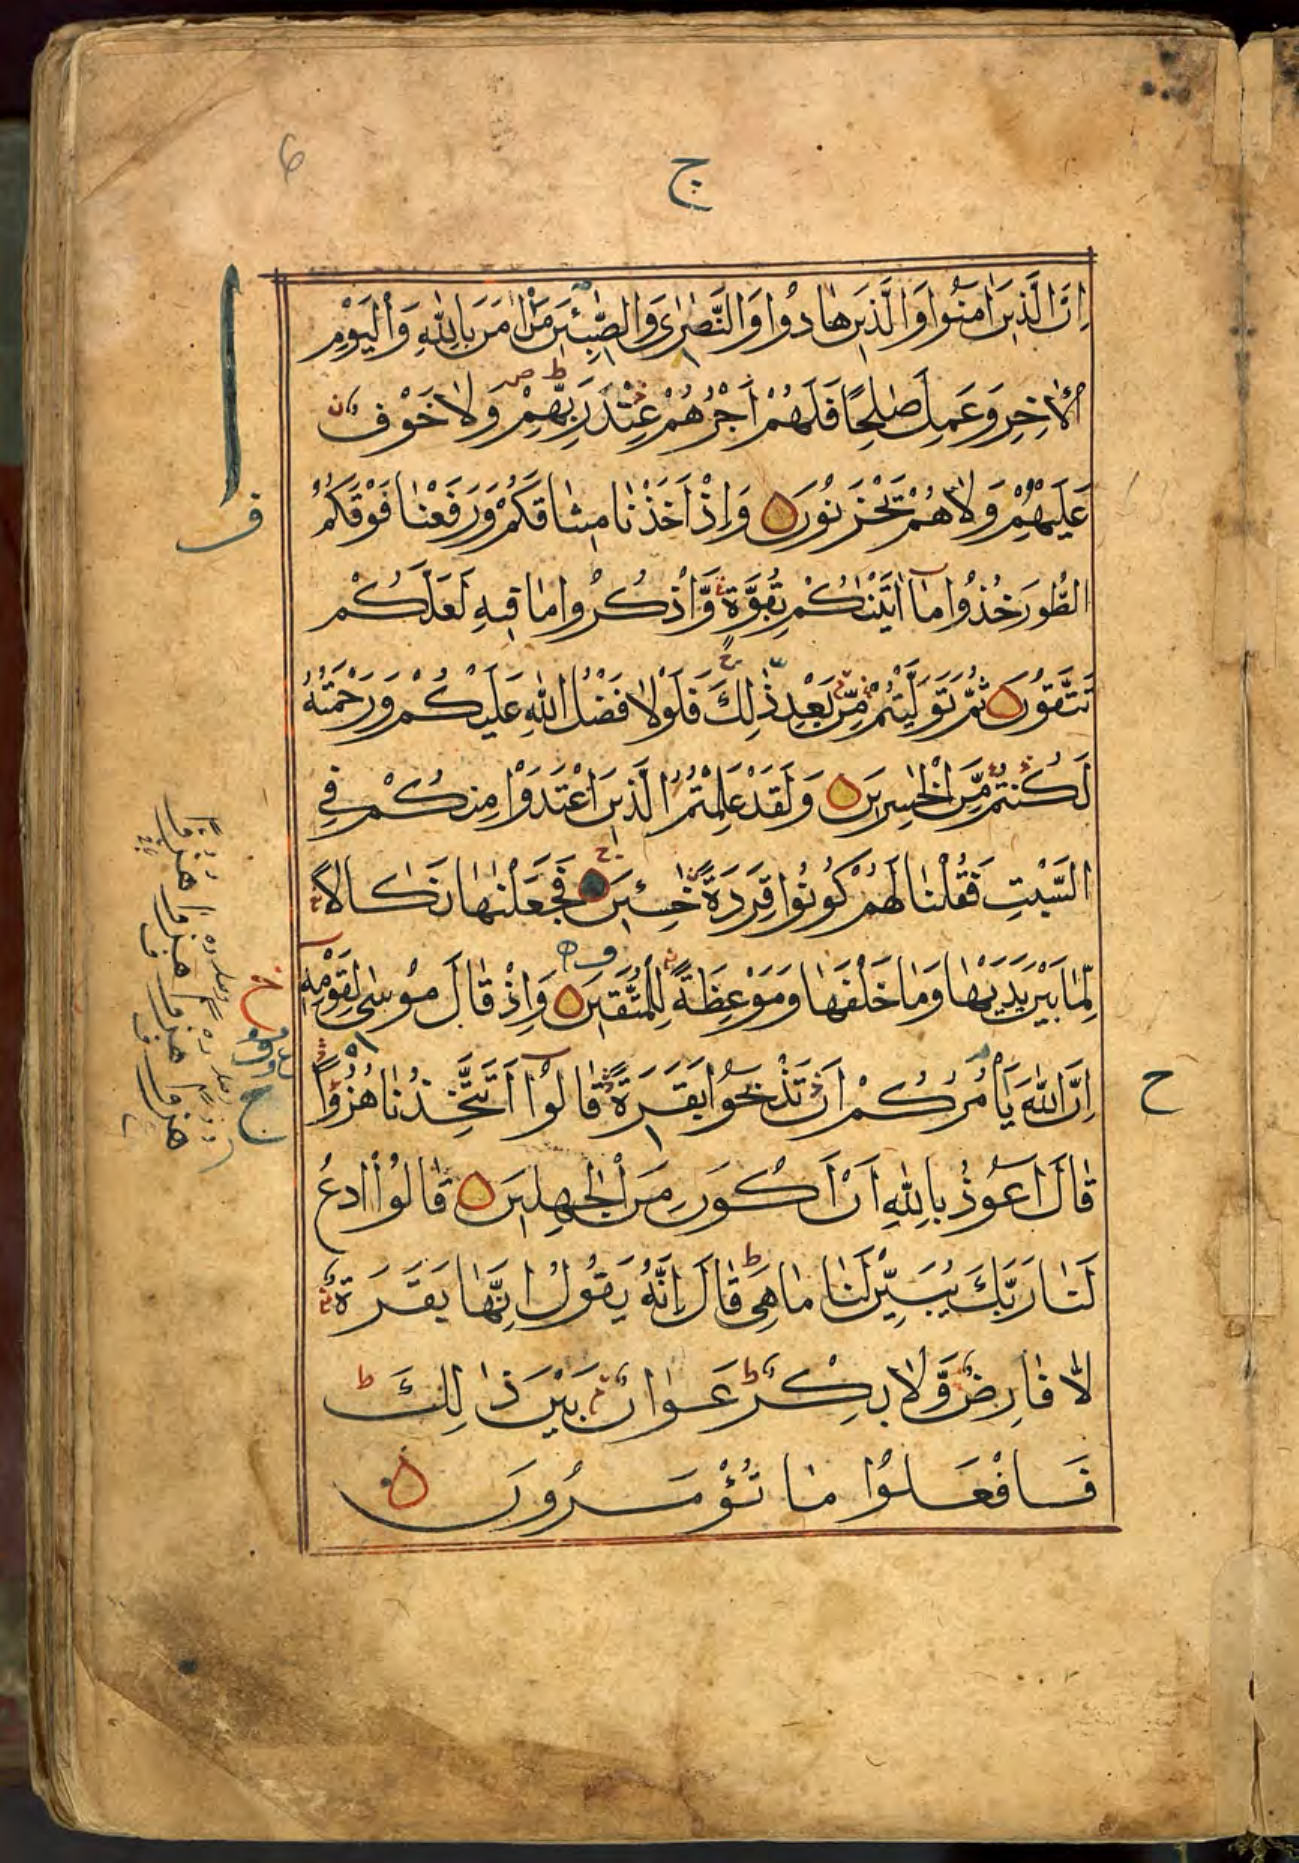 ج
اِنَّ الَّذِيْنَ اٰمَنُوْا وَالَّذِيْنَ هٰادُوْا وَالنَّصٰرٰى وَالصّٰبِـِٔيْنَ مَنْ اٰمَنَ بِاللّٰهِ وَالْيَوْمِ
الْاٰخِرِ وَعَمِلَ صٰلِحًا فَلَهُمْ اَجْرُهُمْ عِنْدَ رَبِّهِمْ وَلٰا خَوْفٌ
عَلَيْهِمْ وَلٰا هُمْ يَحْزَنُوْنَ وَاِذْ اَخَذْنٰا مِيْثٰاقَكُمْ وَرَفَعْنٰا فَوْقَكُمُ
الطُّوْرَ خُذُوْا مٰٓا اٰتَيْنٰكُمْ بِقُوَّةٍ وَّاذْكُرُوْا مٰا فِيْهِ لَعَلَّكُمْ
تَتَّقُوْنَ ثُمَّ تَوَلَّيْتُمْ مِّنْ بَعْدِ ذٰلِكَ فَلَوْلٰا فَضْلُ اللّٰهِ عَلَيْكُمْ وَرَحْمَتُهُ
لَكُنْتُمْ مِّنَ الْخٰسِرِيْنَ وَلَقَدْ عَلِمْتُمُ الَّذِيْنَ اعْتَدَوْا مِنْكُمْ فِي
السَّبْتِ فَقُلْنٰا لَهُمْ كُوْنُوْا قِرَدَةً خٰسِـِٔيْنَ فَجَعَلْنٰهٰا نَكٰالًا
لِّمٰا بَيْنَ يَدَيْهٰا وَمٰا خَلْفَهٰا وَمَوْعِظَةً لِّلْمُتَّقِيْنَ وَاِذْ قٰالَ مُوْسٰى لِقَوْمِهٖٓ
اِنَّ اللّٰهَ يَاْمُرُكُمْ اَنْ تَذْبَحُوْا بَقَرَةً قٰالُوْٓا اَتَتَّخِذُنٰا هُزُوًا
قٰالَ اَعُوْذُ بِاللّٰهِ اَنْ اَكُوْنَ مِنَ الْجٰهِلِيْنَ قٰالُوا ادْعُ
لَنٰا رَبَّكَ يُبَيِّنْ لَّنٰا مٰا هِيَ قٰالَ اِنَّهٗ يَقُوْلُ اِنَّهٰا بَقَرَةٌ
لّٰا فٰارِضٌ وَّلٰا بِكْرٌ عَوٰانٌ بَيْنَ ذٰلِكَ
فَافْعَلُوْا مٰا تُؤْمَرُوْنَ
ح